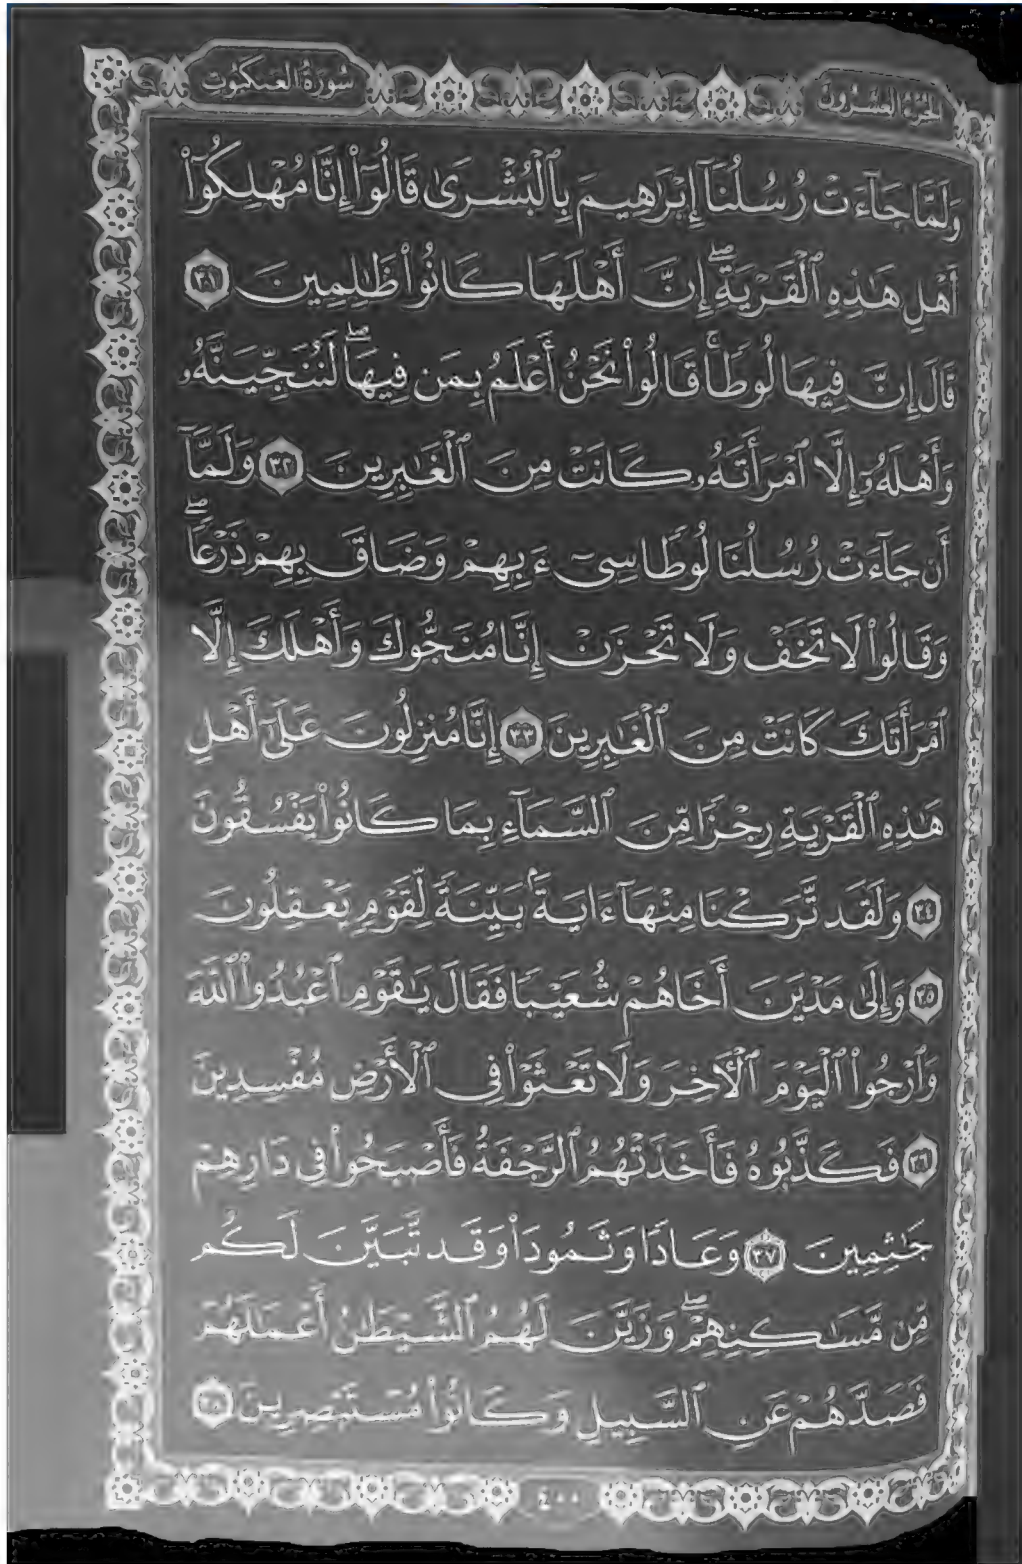 الجزء العشرون
سورة العنكبوت
وَلَمَّا جَآءَتْ رُسُلُنَآ إِبْرَٰهِيمَ بِٱلْبُشْرَىٰ قَالُوٓا۟ إِنَّا مُهْلِكُوٓا۟
أَهْلِ هَٰذِهِ ٱلْقَرْيَةِ ۖ إِنَّ أَهْلَهَا كَانُوا۟ ظَٰلِمِينَ ٣١
قَالَ إِنَّ فِيهَا لُوطًا ۚ قَالُوا۟ نَحْنُ أَعْلَمُ بِمَن فِيهَا ۖ لَنُنَجِّيَنَّهُۥ
وَأَهْلَهُۥٓ إِلَّا ٱمْرَأَتَهُۥ كَانَتْ مِنَ ٱلْغَٰبِرِينَ ٣٢ وَلَمَّآ
أَن جَآءَتْ رُسُلُنَا لُوطًا سِىٓءَ بِهِمْ وَضَاقَ بِهِمْ ذَرْعًا ۖ
وَقَالُوا۟ لَا تَخَفْ وَلَا تَحْزَنْ إِنَّا مُنَجُّوكَ وَأَهْلَكَ إِلَّا
ٱمْرَأَتَكَ كَانَتْ مِنَ ٱلْغَٰبِرِينَ ٣٣ إِنَّا مُنزِلُونَ عَلَىٰٓ أَهْلِ
هَٰذِهِ ٱلْقَرْيَةِ رِجْزًا مِّنَ ٱلسَّمَآءِ بِمَا كَانُوا۟ يَفْسُقُونَ
٣٤ وَلَقَد تَّرَكْنَا مِنْهَآ ءَايَةًۢ بَيِّنَةً لِّقَوْمٍ يَعْقِلُونَ
٣٥ وَإِلَىٰ مَدْيَنَ أَخَاهُمْ شُعَيْبًا فَقَالَ يَٰقَوْمِ ٱعْبُدُوا۟ ٱللَّهَ
وَٱرْجُوا۟ ٱلْيَوْمَ ٱلْءَاخِرَ وَلَا تَعْثَوْا۟ فِى ٱلْأَرْضِ مُفْسِدِينَ
٣٦ فَكَذَّبُوهُ فَأَخَذَتْهُمُ ٱلرَّجْفَةُ فَأَصْبَحُوا۟ فِى دَارِهِمْ
جَٰثِمِينَ ٣٧ وَعَادًا وَثَمُودَا۟ وَقَد تَّبَيَّنَ لَكُم
مِّن مَّسَٰكِنِهِمْ ۖ وَزَيَّنَ لَهُمُ ٱلشَّيْطَٰنُ أَعْمَٰلَهُمْ
فَصَدَّهُمْ عَنِ ٱلسَّبِيلِ وَكَانُوا۟ مُسْتَبْصِرِينَ ٣٨
٤٠٠